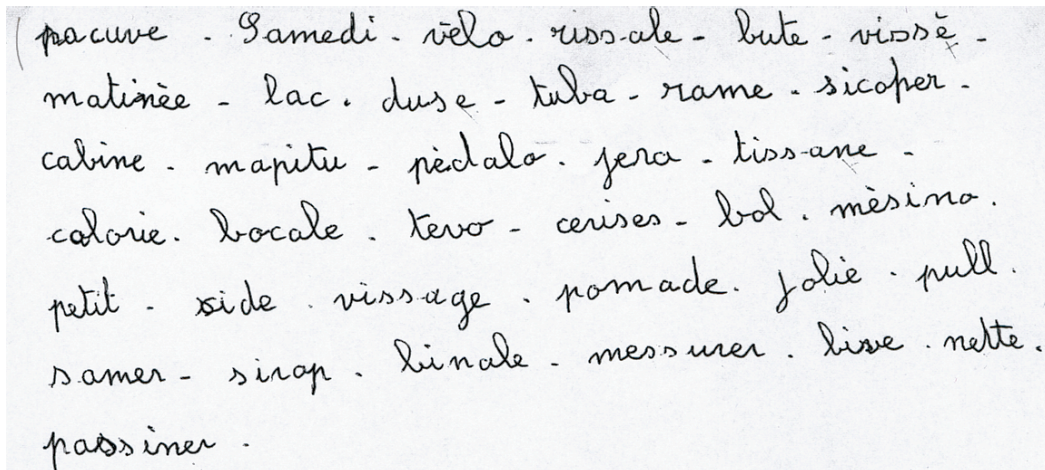 pacuve - Samedi - vèlo - rissale - bute - vissè -
matinèe - lac - duse - tuba - rame - sicoper -
cabine - mapitu - pèdalo - jera - tissane -
calorie - bocale - tevo - cerises - bol - mèsina.
petit - side - vissage - pomade - jolie - pull.
samer - sirap - binale - messurer - live - nette.
passiner -